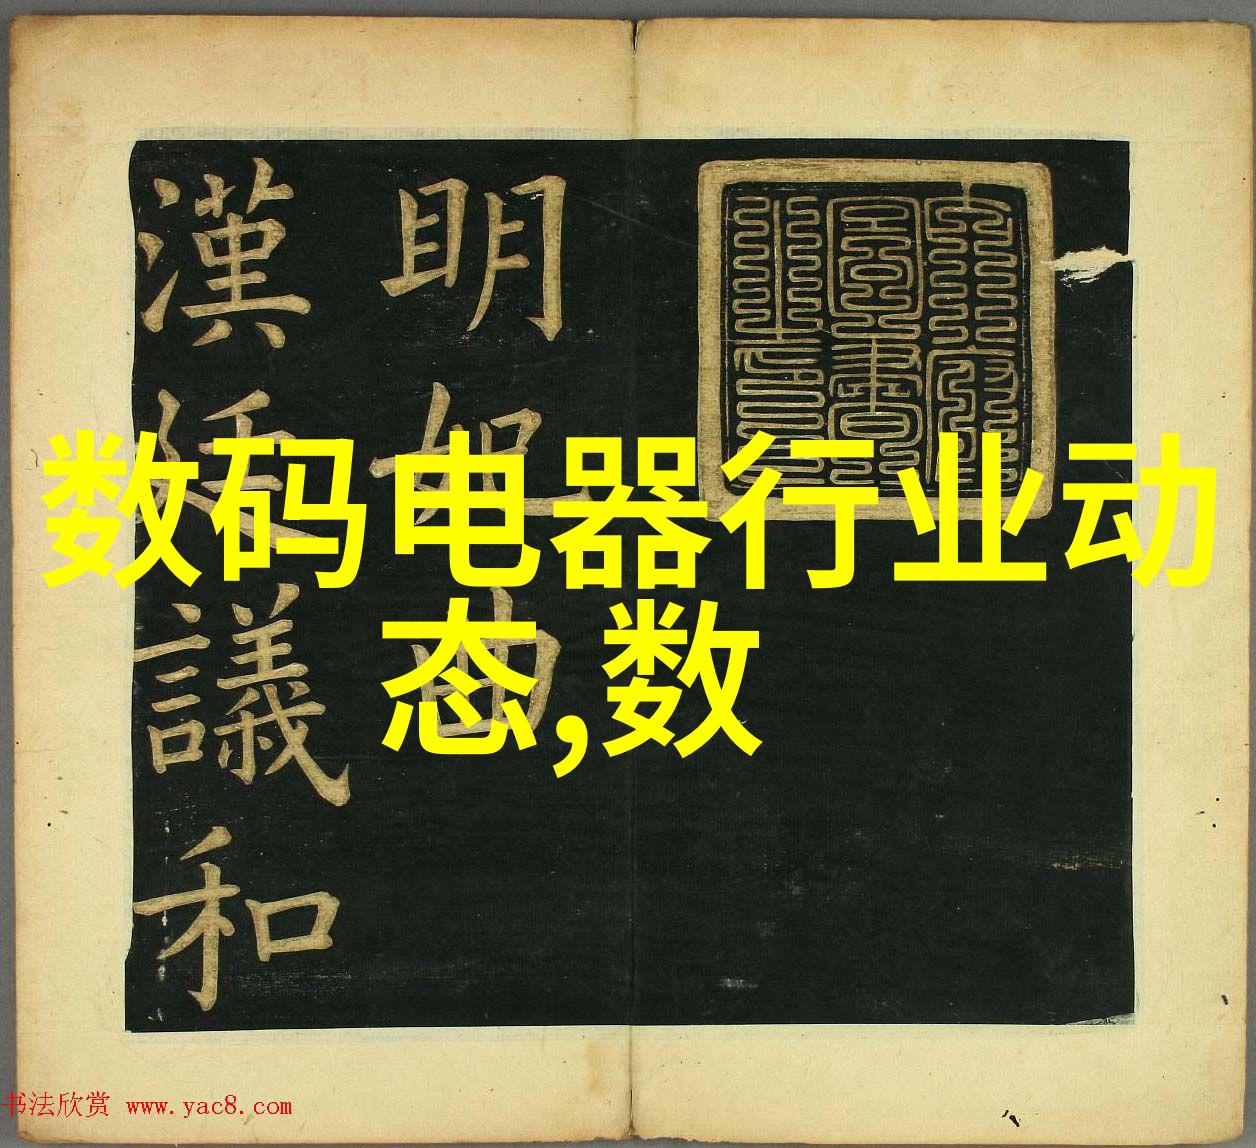 数码电器行业动
态,数
明妃曲
漢廷議和
书法欣赏 www.yac8.com